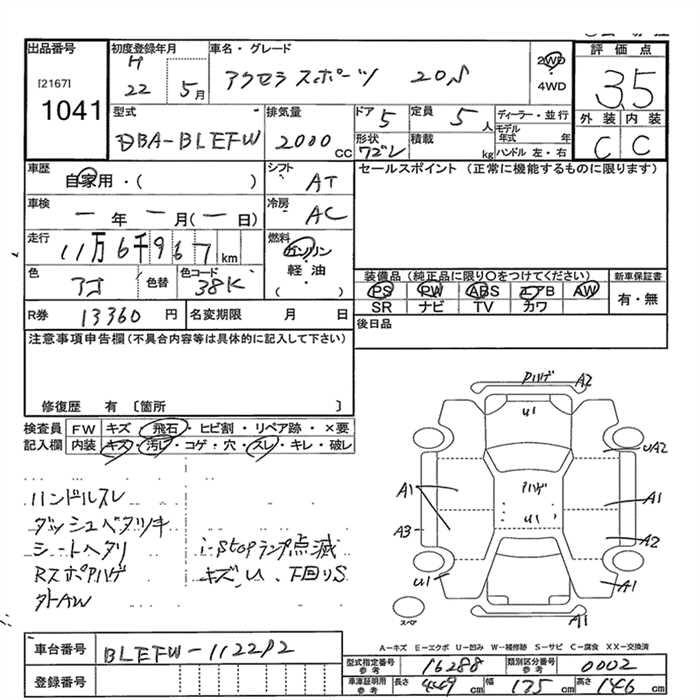 出品番号
[2167]
1041
初度登録年月
H
22 5月
車名・グレード
アクセラスポーツ 20S
2WD
4WD
評価点
3.5
外装 内装
C C
型式
DBA-BLEFW
排気量
2000 CC
ドア
5
定員
5人
形状
ワゴン
積載
kg
ディーラー・並行
モデル年式 年
ハンドル 左・右
車歴
自家用・( )
シフト
AT
車検
一年一月(一日)
冷房
AC
走行
11万6千967km
燃料
ガソリン
軽油
( )
色
アオ
色替
色コード
38K
R券
13360円
名変期限 月 日
セールスポイント (正常に機能するものに限ります)
装備品 (純正品に限り○をつけてください)
PS PW ABS エアB AW
SR ナビ TV カワ
新車保証書
有・無
後日品
注意事項申告欄(不具合内容等は具体的に記入して下さい)
修復歴 有 〔箇所 〕
検査員記入欄
FW キズ・飛石・ヒビ割・リペア跡・×要
内装 キズ・汚れ・コゲ・穴・スレ・キレ・破レ
ハンドルスレ
ダッシュベタツキ
シートヘタリ
RスポPハゲ
外AW
i-stopランプ点滅
キズ、U、下回りS
Pハゲ A2
U1
UA2
A1
Pハゲ
U1
A1
A3
A2
U1
A1
スペア
A1
A-キズ E-エクボ U-凹み W-補修跡 S-サビ C-腐食 XX-交換済
車台番号
BLEFW-112292
登録番号
型式指定番号 参考
16288
類別区分番号 参考
0002
車庫証明用 参考
長さ 449cm 幅 175cm 高さ 146cm